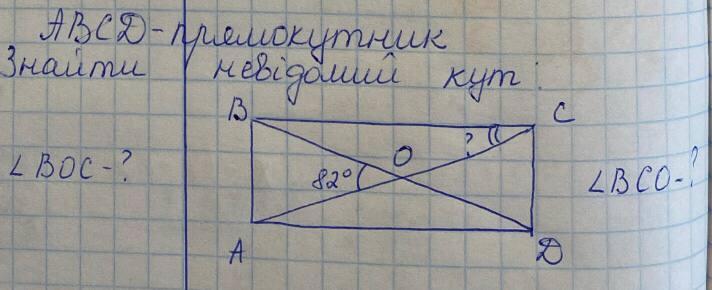 ABCD - прямокутник
Знайти невідомий кут:
B C
? 
O
∠BOC - ?
82°
∠BCO - ?
A D